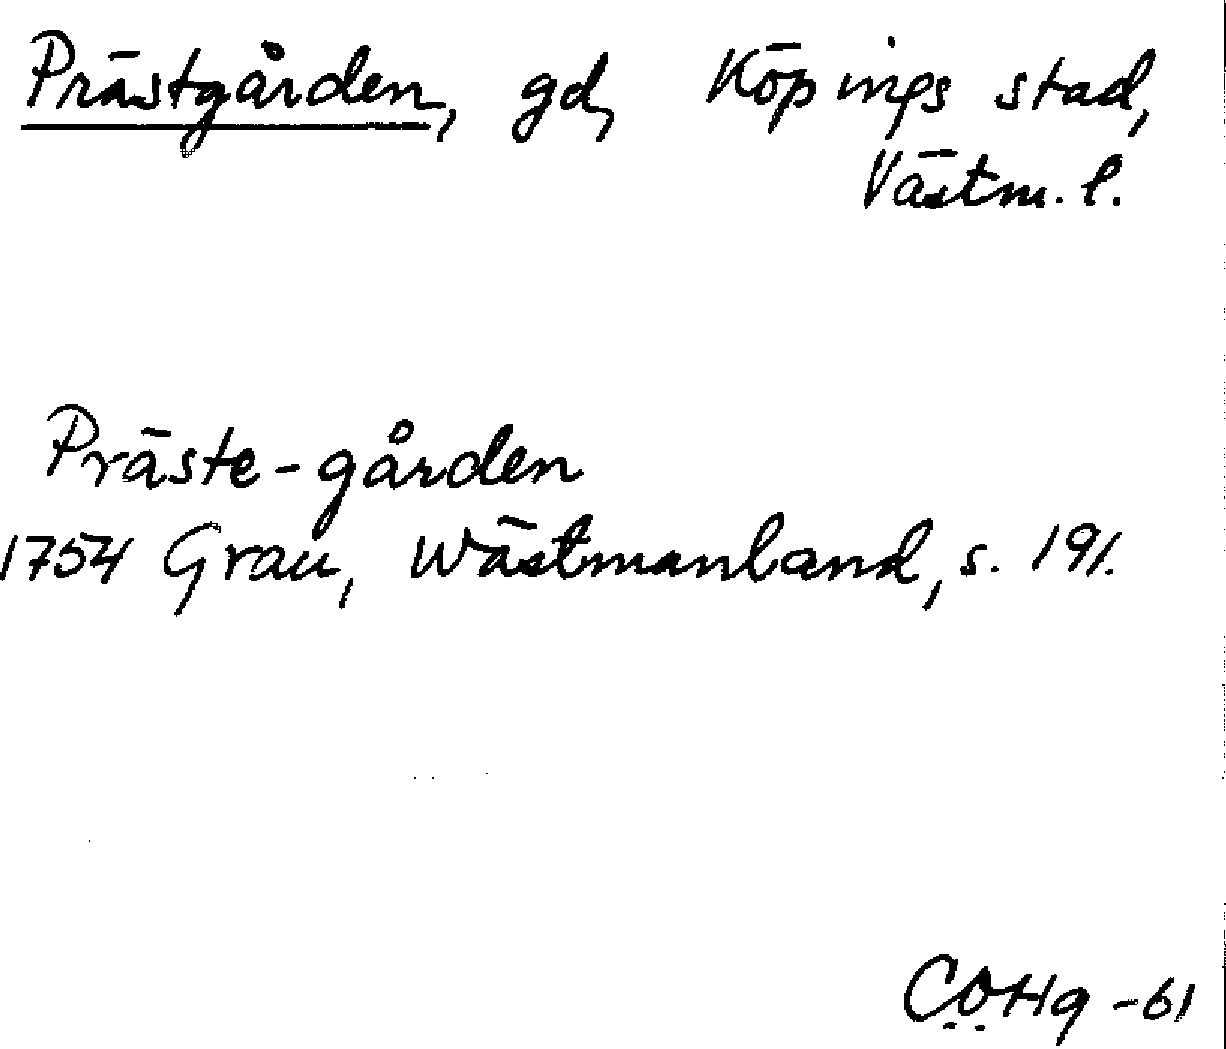 Prästgården, gd, Köpings stad,
Västm. l.
Präste-gården
1754 Grau, Wästmanland, s. 191.
COHg -61